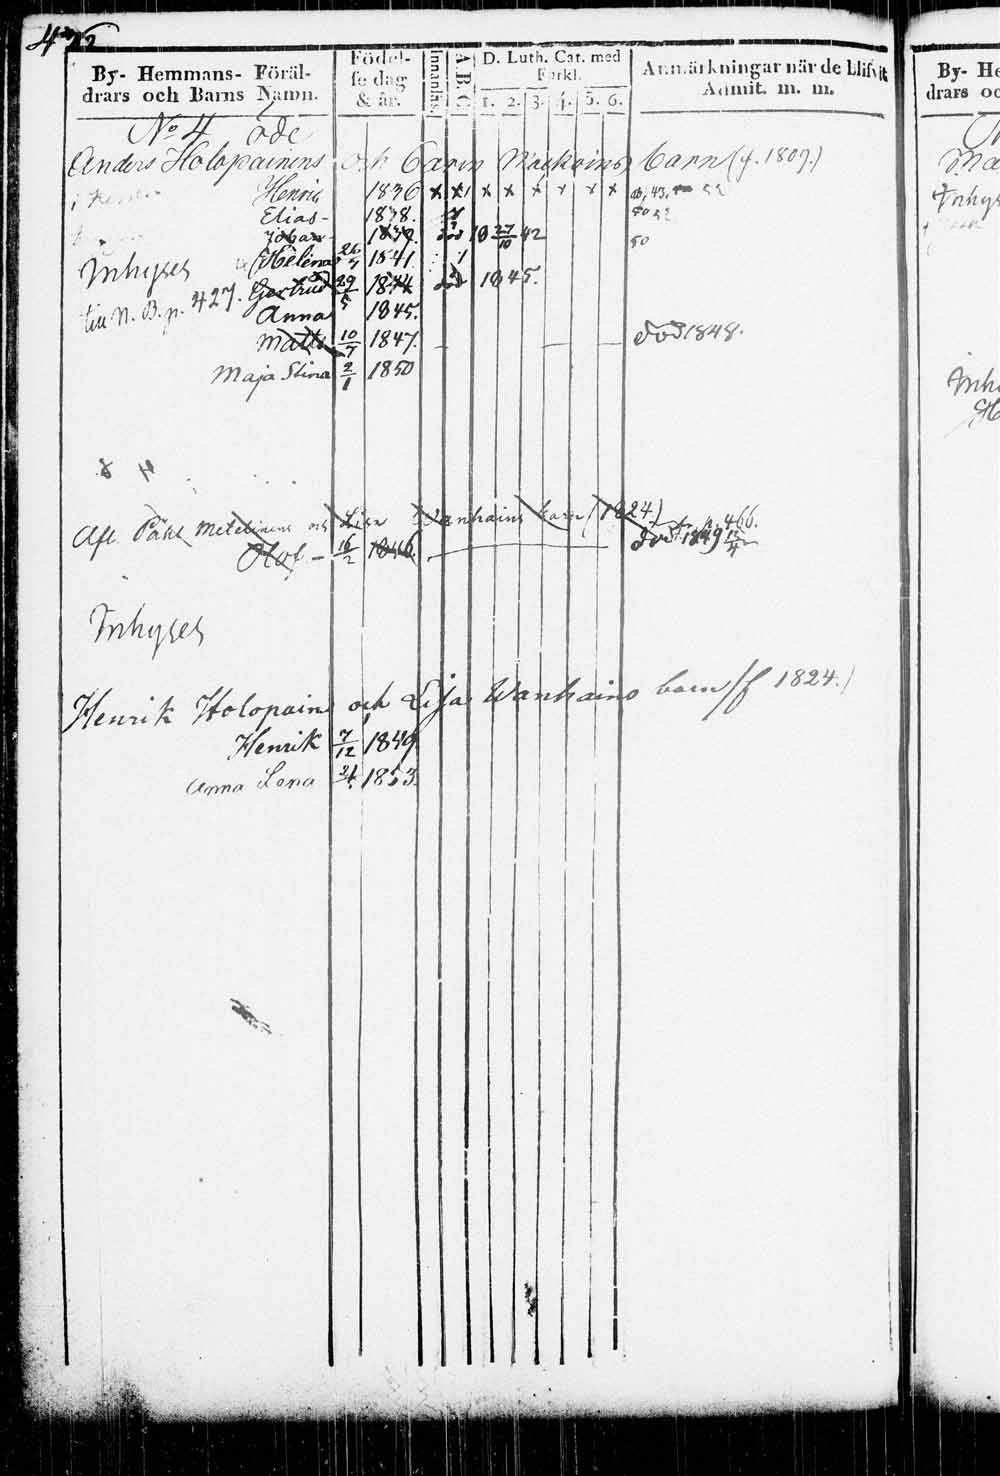 By- Hemmans- Föräl-
drars och Barns Namn.
Födel-
se dag
& år.
Innanläs.
A.B.C.
D. Luth. Cat. med
Förkl.
1. 2. 3. 4. 5. 6.
Anmärkningar när de blifvit
Admit. m. m.
No 4 öde
Anders Holopainens och Carin barn (f. 1809.)
Henric 1836 x x x x x x x x 43. 52
Elias - 1838. 50 52
Johan - 1839. död 18 27/10 42 50
Inhyses
Helena 26 1841
till N. B. p. 427. Gertrud 29/5 1844 död 1845.
Anna 1845.
Matts 10/7 1847. — död 1848.
Maja Stina 2/1 1850
Afl. Påhl Metelinens och Lisa Vanhains barn (1824) p. 466.
Olof - 16/2 1846. död 1849
Inhyses
Henrik Holopains och Lisa Wanhains barn (f 1824.)
Henrik 7/12 1849
Anna Lena 24 1853.
By- He
drars oc
Inhys